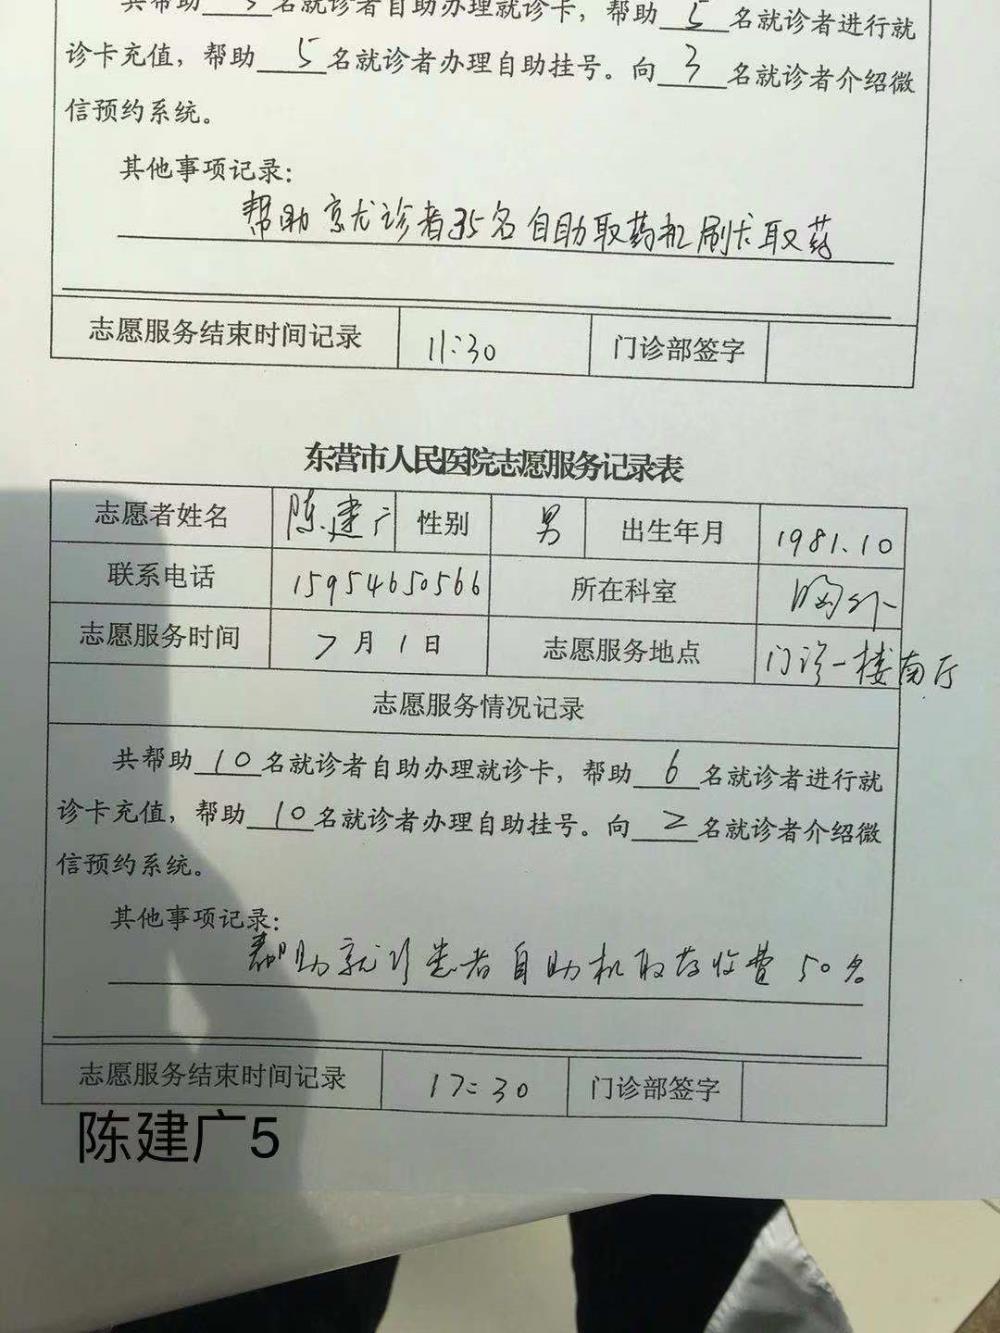 共帮助 5 名就诊者自助办理就诊卡，帮助 5 名就诊者进行就
诊卡充值，帮助 5 名就诊者办理自助挂号。向 3 名就诊者介绍微
信预约系统。
其他事项记录：
帮助就诊者35名自助取药机刷卡取药
志愿服务结束时间记录 11:30 门诊部签字
东营市人民医院志愿服务记录表
志愿者姓名 陈建广 性别 男 出生年月 1981.10
联系电话 15954650566 所在科室 胸外
志愿服务时间 7月1日 志愿服务地点 门诊一楼南厅
志愿服务情况记录
共帮助 10 名就诊者自助办理就诊卡，帮助 6 名就诊者进行就
诊卡充值，帮助 10 名就诊者办理自助挂号。向 2 名就诊者介绍微
信预约系统。
其他事项记录：
帮助就诊患者自助机取药收费50名
志愿服务结束时间记录 17:30 门诊部签字
陈建广5